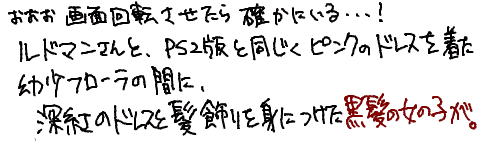 おおお 画面回転させたら 確かにいる…!
ルドマンさんと、PS2版と同じく ピンクのドレスを着た
幼少フローラの間に、
深紅のドレスと髪飾りを身につけた黒髪の女の子が。